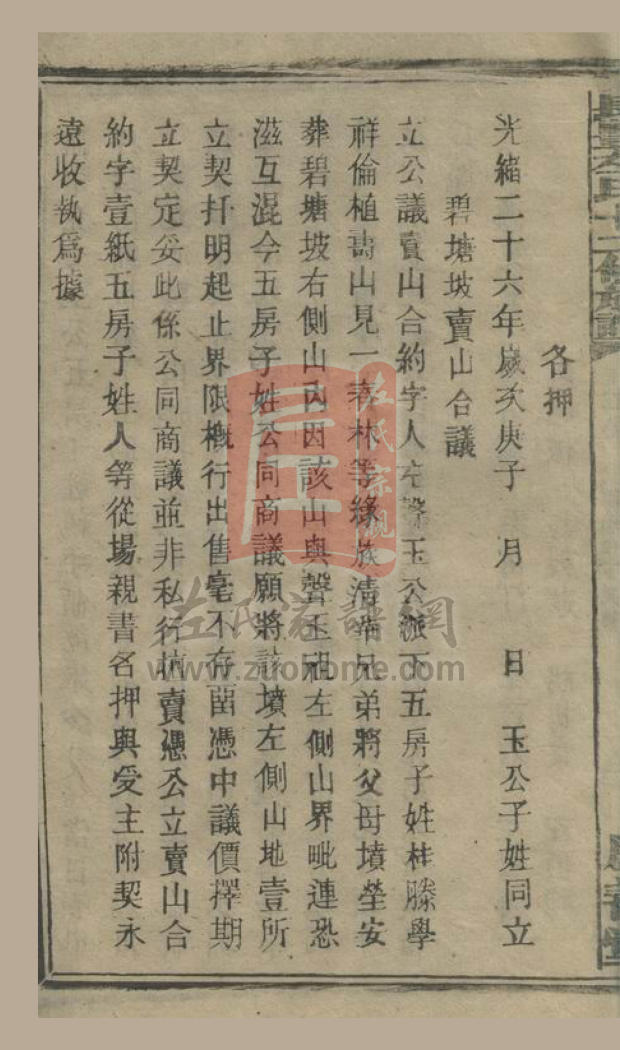 各押
光緒二十六年歲次庚子 月 日 玉公子姓同立
碧塘坡賣山合議
立公議賣山合約字人左聲玉公派下五房子姓桂滕學
祥倫植壽山見一 林等緣族清 兄弟將父母墳塋安
葬碧塘坡右側山內因該山與聲玉祖左側山界毗連恐
滋互混今五房子姓公同商議願將該墳左側山地壹所
立契扦明起止界限概行出售毫不存留憑中議價擇期
立契定妥此係公同商議並非私行 賣憑公立賣山合
約字壹紙五房子姓人等從場親書名押與受主附契永
遠收執爲據
左氏宗親
左氏家譜網
www.zuohome.com